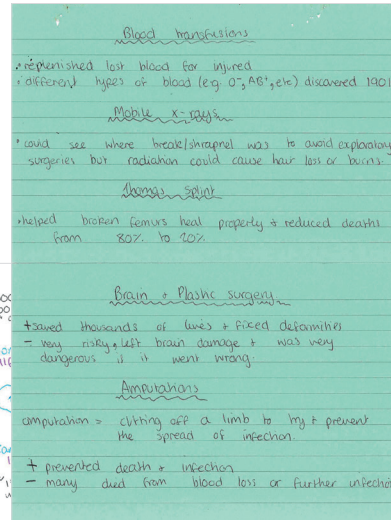 Blood transfusions
• replenished lost blood for injured
• different types of blood (e.g. O⁻, AB⁺, etc) discovered 1901
Mobile x-rays
• could see where break/shrapnel was to avoid exploratory
surgeries but radiation could cause hair loss or burns.
Thomas splint
• helped broken femurs heal properly + reduced deaths
from 80% to 20%
Brain + Plastic surgery
+ saved thousands of lives + fixed deformities
- very risky, left brain damage + was very
dangerous if it went wrong.
Amputations
amputation = cutting off a limb to try + prevent
the spread of infection.
+ prevented death + infection
- many died from blood loss or further infectio